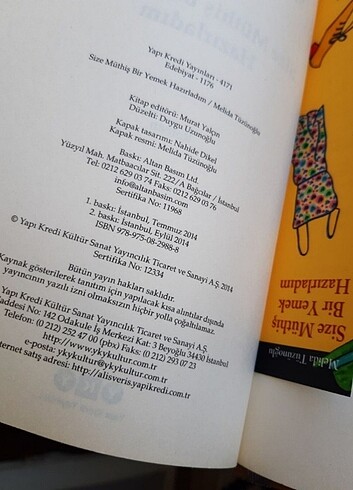 Yapı Kredi Yayınları - 4171
Edebiyat - 1176
Size Müthiş Bir Yemek Hazırladım / Melida Tüzünoğlu
Kitap editörü: Murat Yalçın
Düzelti: Duygu Uzunoğlu
Kapak tasarımı: Nahide Dikel
Kapak resmi: Melida Tüzünoğlu
Baskı: Altan Basım Ltd.
Yüzyıl Mah. Matbaacılar Sit. 222/A Bağcılar / İstanbul
Tel: 0212 629 03 74 Faks: 0212 629 03 76
info@altanbasim.com
Sertifika No: 11968
1. baskı: İstanbul, Temmuz 2014
2. baskı: İstanbul, Eylül 2014
ISBN 978-975-08-2988-8
© Yapı Kredi Kültür Sanat Yayıncılık Ticaret ve Sanayi A.Ş. 2014
Sertifika No: 12334
Bütün yayın hakları saklıdır.
Kaynak gösterilerek tanıtım için yapılacak kısa alıntılar dışında
yayıncının yazılı izni olmaksızın hiçbir yolla çoğaltılamaz.
Yapı Kredi Kültür Sanat Yayıncılık Ticaret ve Sanayi A.Ş.
Caddesi No: 142 Odakule İş Merkezi Kat: 3 Beyoğlu 34430 İstanbul
Telefon: (0 212) 252 47 00 (pbx) Faks: (0 212) 293 07 23
http://www.ykykultur.com.tr
e-posta: ykykultur@ykykultur.com.tr
nternet satış adresi: http://alisveris.yapikredi.com.tr
Size Müthiş
Bir Yemek
Hazırladım
Melida Tüzünoğlu